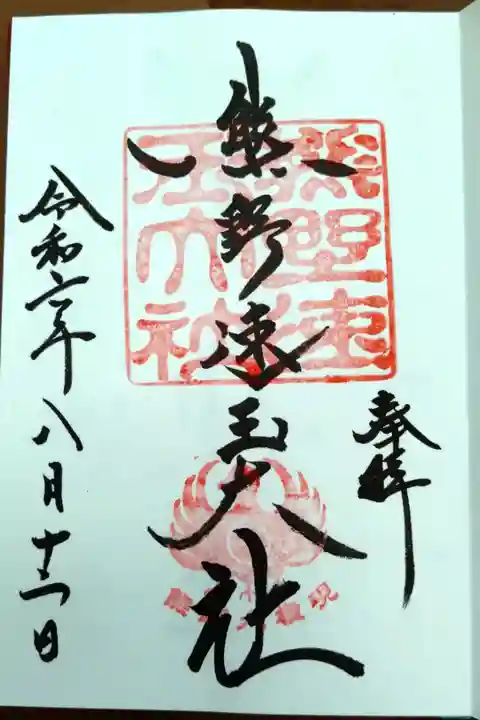 奉拝
熊野速玉大社
熊野速
玉大社
令和六年八月十二日